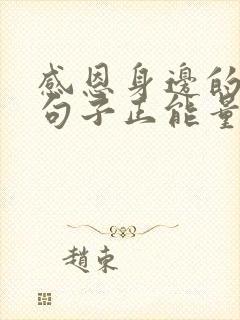 感恩身邊的
句子正能量
趙東